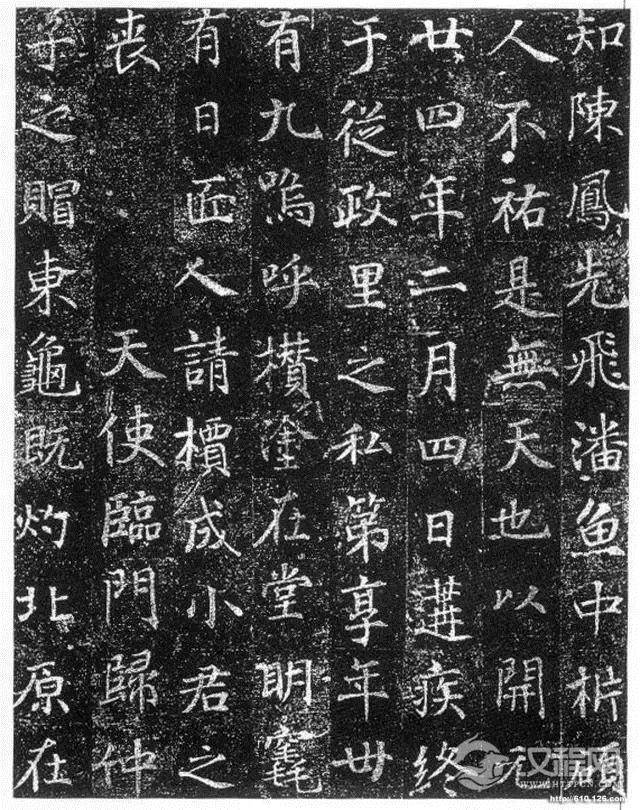 知陳鳳先飛潘魚中
人不祐是無天也以開元
廿四年二月四日遘疾終
于從政里之私第享年卅
有九嗚呼欑塗在堂明竁
有日匠人請檟成小君之
喪 天使臨門歸仲
子之賵東龜既灼北原在
汉程网
WWW.HTTPCN.COM
http://610.126.com